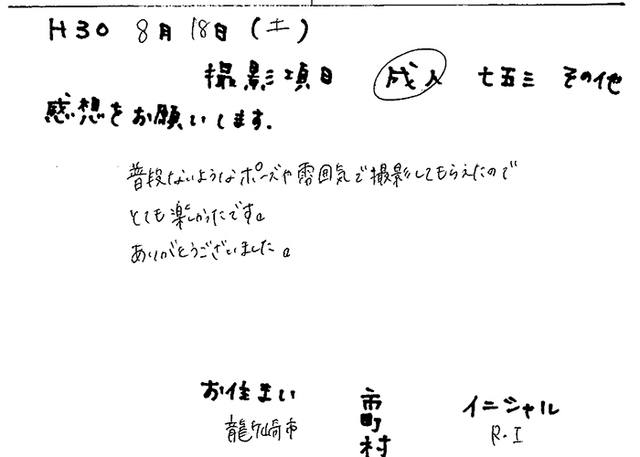 H30 8月 18日 (土)
撮影項目 成人 七五三 その他
感想をお願いします.
普段ないようなポーズや雰囲気で撮影してもらえたので
とても楽しかったです。
ありがとうございました。
お住まい 市町村 イニシャル
龍ケ崎市 R.I